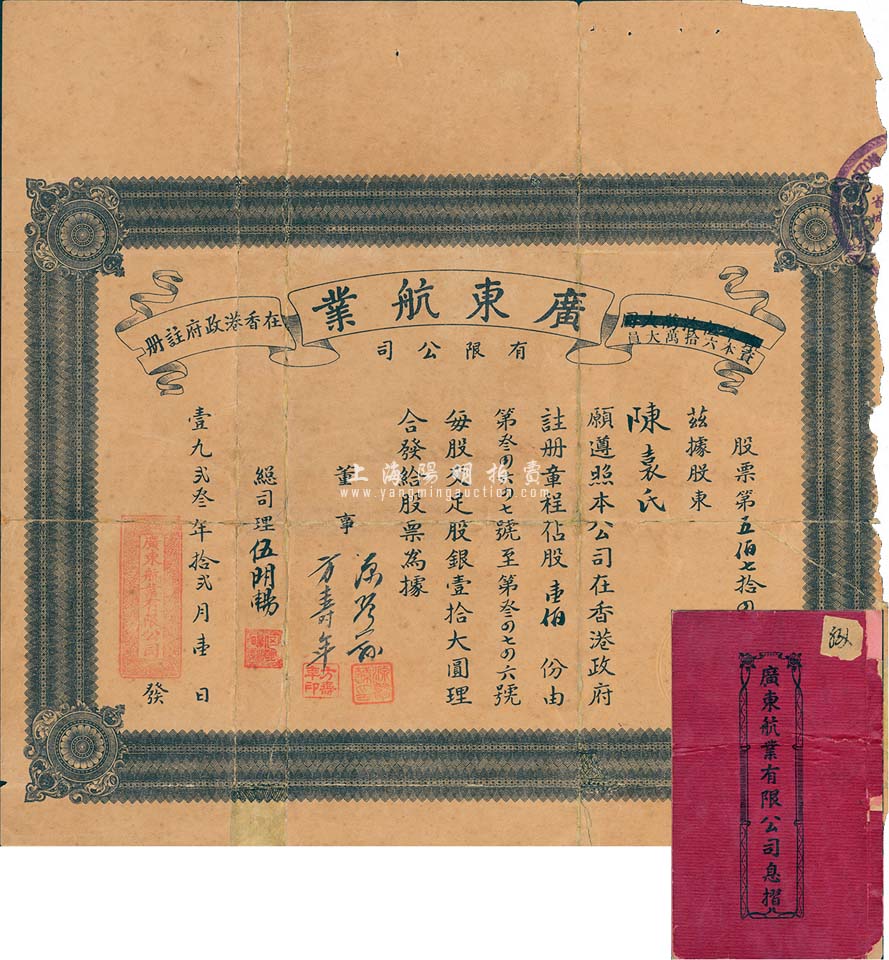 廣東航業
有限公司
在香港政府註冊
資本六拾萬大員
股票第五佰七拾四
茲據股東
陳袁氏
願遵照本公司在香港政府
註册章程佔股壹佰份由
第叁四六四七號至第叁四七四六號
每股交足股銀壹拾大圓理
合發給股票為據
董事
方壽年
總司理伍時暢
壹九弍叁年拾弍月壹日發
廣東航業有限公司
方壽年印
上海陽明拍賣
www.yangmingauction.com
廣東航業有限公司息摺